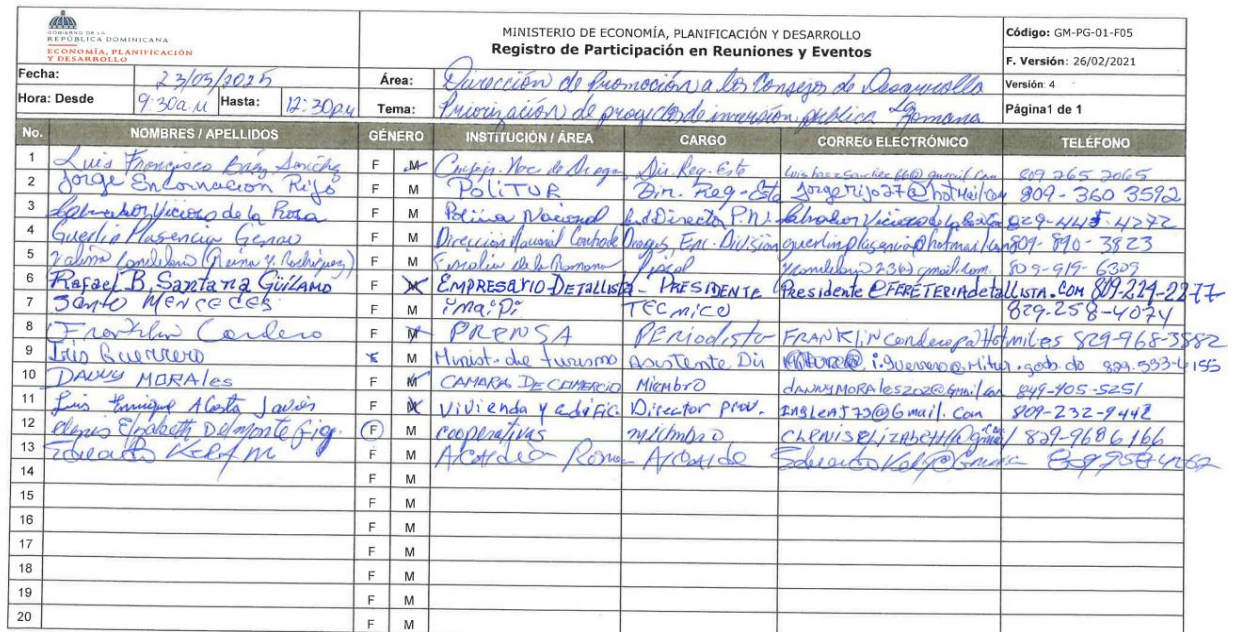 GOBIERNO DE LA
REPÚBLICA DOMINICANA
ECONOMÍA, PLANIFICACIÓN
Y DESARROLLO
MINISTERIO DE ECONOMÍA, PLANIFICACIÓN Y DESARROLLO
Registro de Participación en Reuniones y Eventos
Código: GM-PG-01-F05
F. Versión: 26/02/2021
Versión: 4
Página1 de 1
Fecha: 23/05/2025 Área: Dirección de Promoción a los Consejos de Desarrollo
Hora: Desde 9:30a.m Hasta: 12:30pm Tema: Priorización de proyectos de inversión pública La Romana
No. NOMBRES / APELLIDOS GÉNERO INSTITUCIÓN / ÁREA CARGO CORREO ELECTRÓNICO TELÉFONO
1 Luis Francisco Báez Sanchez F M Nac. de Drogas Dir. Reg. Este 809 265 2065
2 Jorge Encarnacion Rijo F M POLITUR Dir. Reg. Este Jorgerijo27@hotmail.com 809-360 3592
3 Salvador Vicioso de la Rosa F M Policia Nacional Director P.N. 829-445-4272
4 Plasencia F M Dirección Nacional Control de Drogas, Enc. División 809-890-3823
5 (Reina Y. Rodriguez) F M Fiscalia de la Romana Fiscal 809-919-6309
6 Rafael B. Santana Güilamo F M EMPRESARIO-DETALLISTA - PRESIDENTE Presidente@FERETERIAdetallista.COM 809-224-2277
7 Santo Mercedes F M TECNICO 829-258-4074
8 Franklin Cordero F M PRENSA PERiodista 829-968-3882
9 Iris Guerrero F M Minist. de turismo Asistente Dir i.guerrero@mitur.gob.do 829-533-4155
10 DANNY MORAles F M CAMARA DE COMERCIO Miembro dannymorales202@gmail.com 849-405-5251
11 Luis Enrique Acosta Javier F M Vivienda y edific. Director prov. Ingleaj73@Gmail.com 809-232-9442
12 Elizabeth Delmonte F M cooperativas miembro 829-9686166
13 Eduardo Kelly M F M Alcaldia Romana Alcalde
14 F M
15 F M
16 F M
17 F M
18 F M
19 F M
20 F M